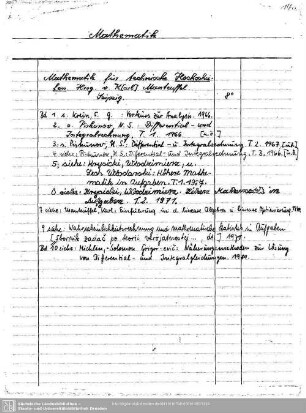 Mathematik
Mathematik für technische Hochschu-
len Hrsg. v. K[arl] Manteuffel
Leipzig. 8°
Bd 1 s. Krein, S. G.: Vorkurs zur Analysis. 1966.
2. s. Piskunov, N. S.: Differential- und
Integralrechnung, T. 1. 1966
3. s. Piskunov, N. S.: Differential- und Integralrechnung T. 2. 1967
4 siehe: Piskunov, N. S.: Differential- und Integralrechnung, T. 3. 1966
5, siehe: Krysicki, Włodzimierz, u.
Lech Włodarski: Höhere Mathe-
matik in Aufgaben. T. 1. 1967.
6 siehe: Krysicki, Włodzimierz. Höhere Mathematik in
Aufgaben. T. 2. 1971.
7 siehe: Manteuffel, Karl: Einführung in d. lineare Algebra u. lineare Optimierung
9 siehe: Wahrscheinlichkeitsrechnung und mathematische Statistik in Aufgaben
[Sbornik zadač po teorii verojatnostej ... dt.] 1970.
Bd 10 siehe: Michlin, Solomon Grigor'evič: Näherungsmethoden zur Lösung
von Differential- und Integralgleichungen. 1970.